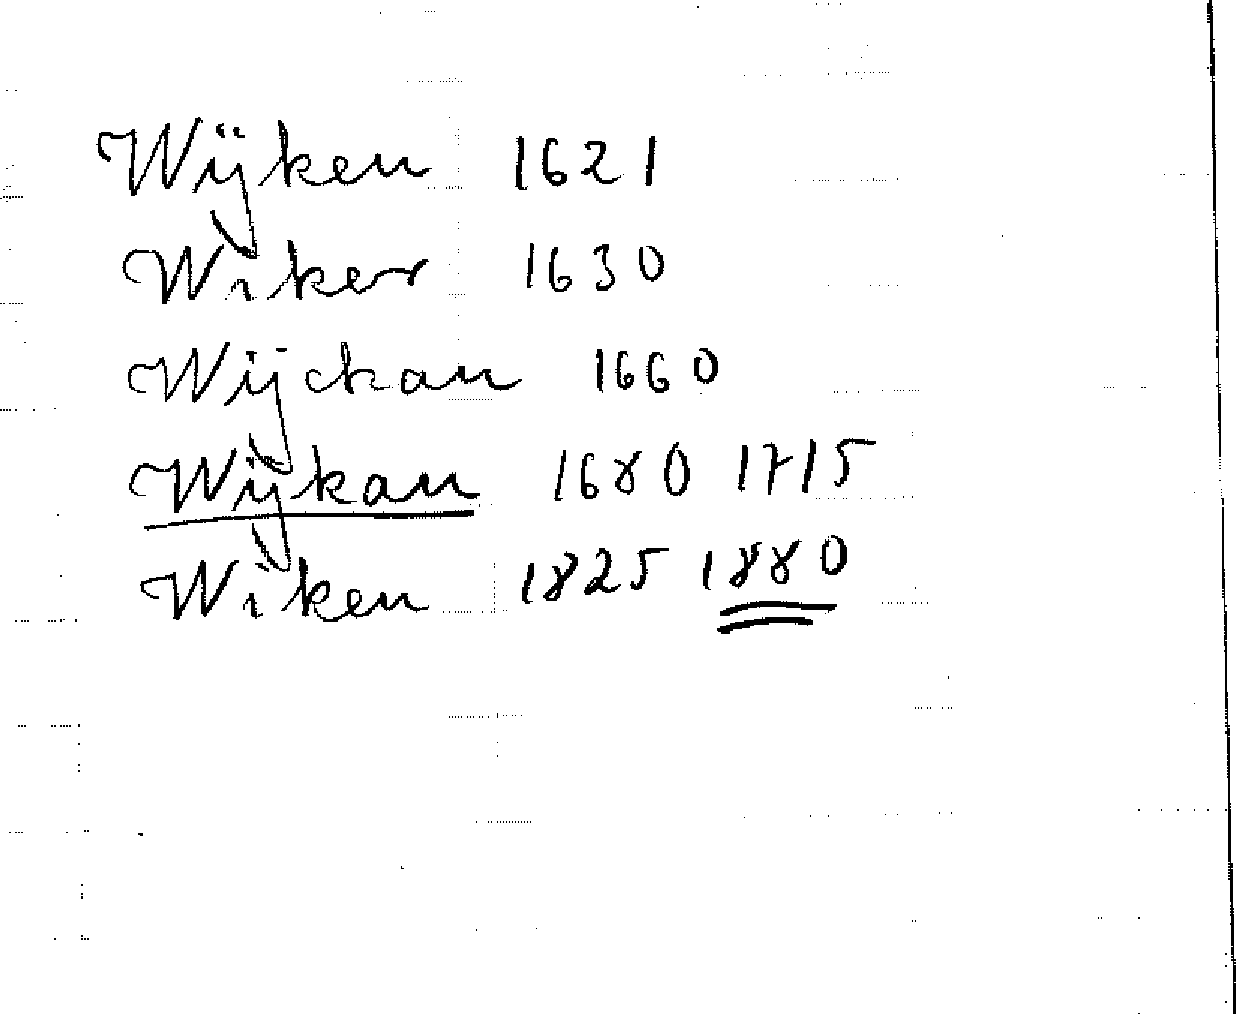 Wijken 1621
Wiker 1630
Wijckan 1660
Wijkan 1680 1715
Wiken 1825 1880